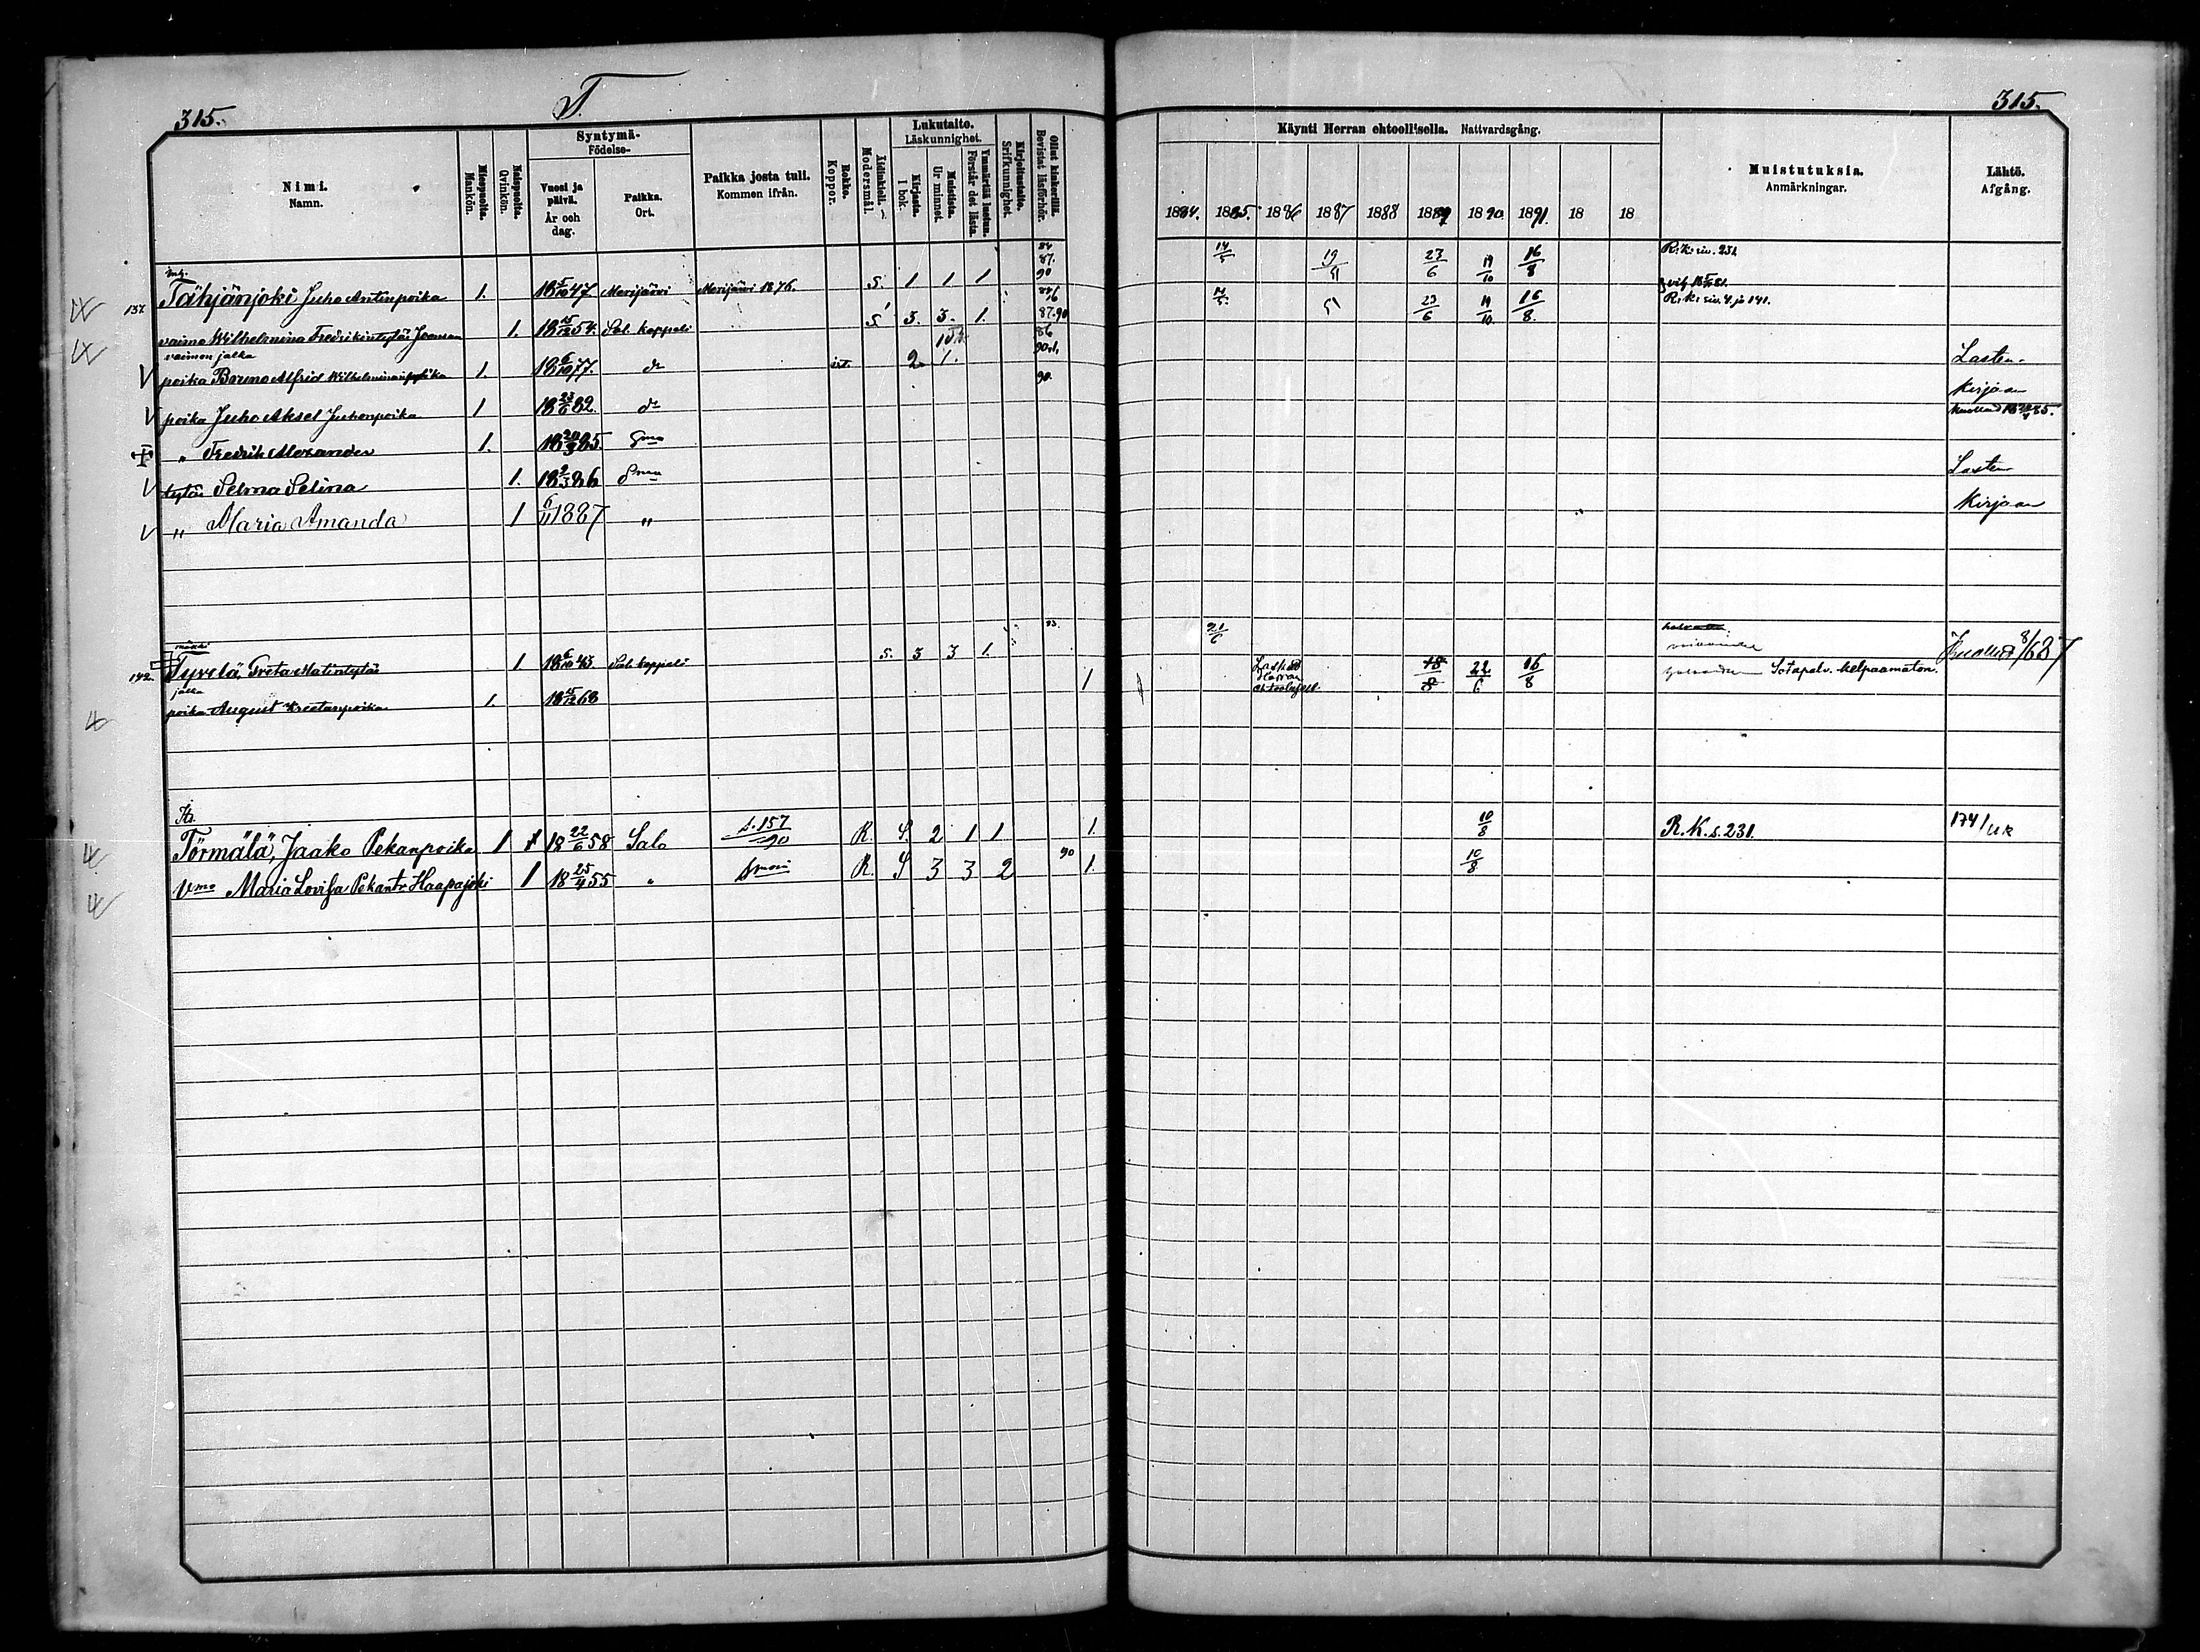 315.
T.
Nimi.
Namn.
Miespuolta.
Mankön.
Naispuolta.
Qvinkön.
Syntymä-
Födelse-
Vuosi ja päivä.
År och dag.
Paikka.
Ort.
Paikka josta tuli.
Kommen ifrån.
Rokko.
Koppor.
Äidinkieli.
Modersmål.
Lukutaito.
Läskunnighet.
Kirjasta.
I bok.
Muistista.
Ur minnet.
Ymmärtää luetun.
Förstår det lästa.
Kirjoitustaito.
Srifkunnighet.
Ollut kinkerillä.
Bevistat läsförhör.
137. Tähjänjoki Juho Antinpoika 1. 18 5/10 47. Merijärvi Merijärvi 1876. S. 1 1 1 84 87. 90
vaimo Wilhelmina Fredrikintytär 1. 54. Sal. kappeli S 3. 3. 1. 87.90
vaimon jalka
poika Bruno Alfrid Wilhelminanpoika 1. 18 6/10 77. do 2 1. 86
poika Juho Aksel Juhonpoika 1 18 23/6 82 do 90.
" Fredrik Alexander 1. 85
tytär Selma Selina 1. 86
" Maria Amanda 1 6/11 1887 "
142. Tyrslä, Greta Matintytär 1 Sal. kappeli S. 3 3 1.
jalka
poika August Kreetanpoika 1. 68 1
Törmälä, Jaako Pekanpoika 1 18 22/6 58 Salo s. 157/90 R. S. 2 1 1 1.
Vmo Maria Lovisa Pekantr Haapajoki 1 18 25/4 55 " R. S 3 3 2 90 1.
315.
Käynti Herran ehtoollisella. Nattvardsgång.
1884. 1885. 1886 1887 1888 1889 1890. 1891. 18 18
Muistutuksia.
Anmärkningar.
Lähtö.
Afgång.
14/5 19/ 23/6 19/10 16/8 R. K. siv. 231.
23/6 19/10 16/8. R. K. siv. 4. ja 141.
Lasten-
kirjaan
85.
Lasten
Kirjaan
21/6 Kuollut 8/6 87
Herran 18/8 22/6 16/8 Sotapalv. kelpaamaton.
10/8 R. K. s. 231. 174/UK
10/8